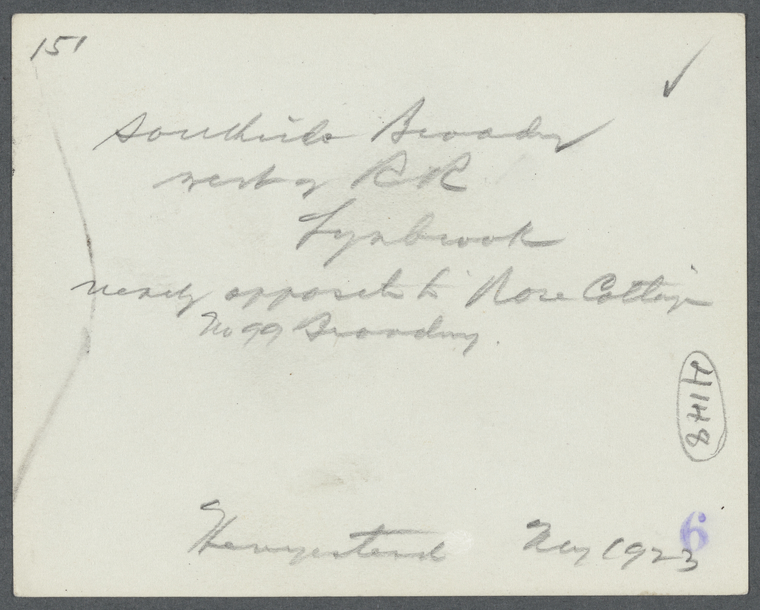 151
Southside Broadway
west of RR
Lynbrook
nearly opposite to "Rose Cottage"
No 99 Broadway.
4148
Hempstead May 1923
6